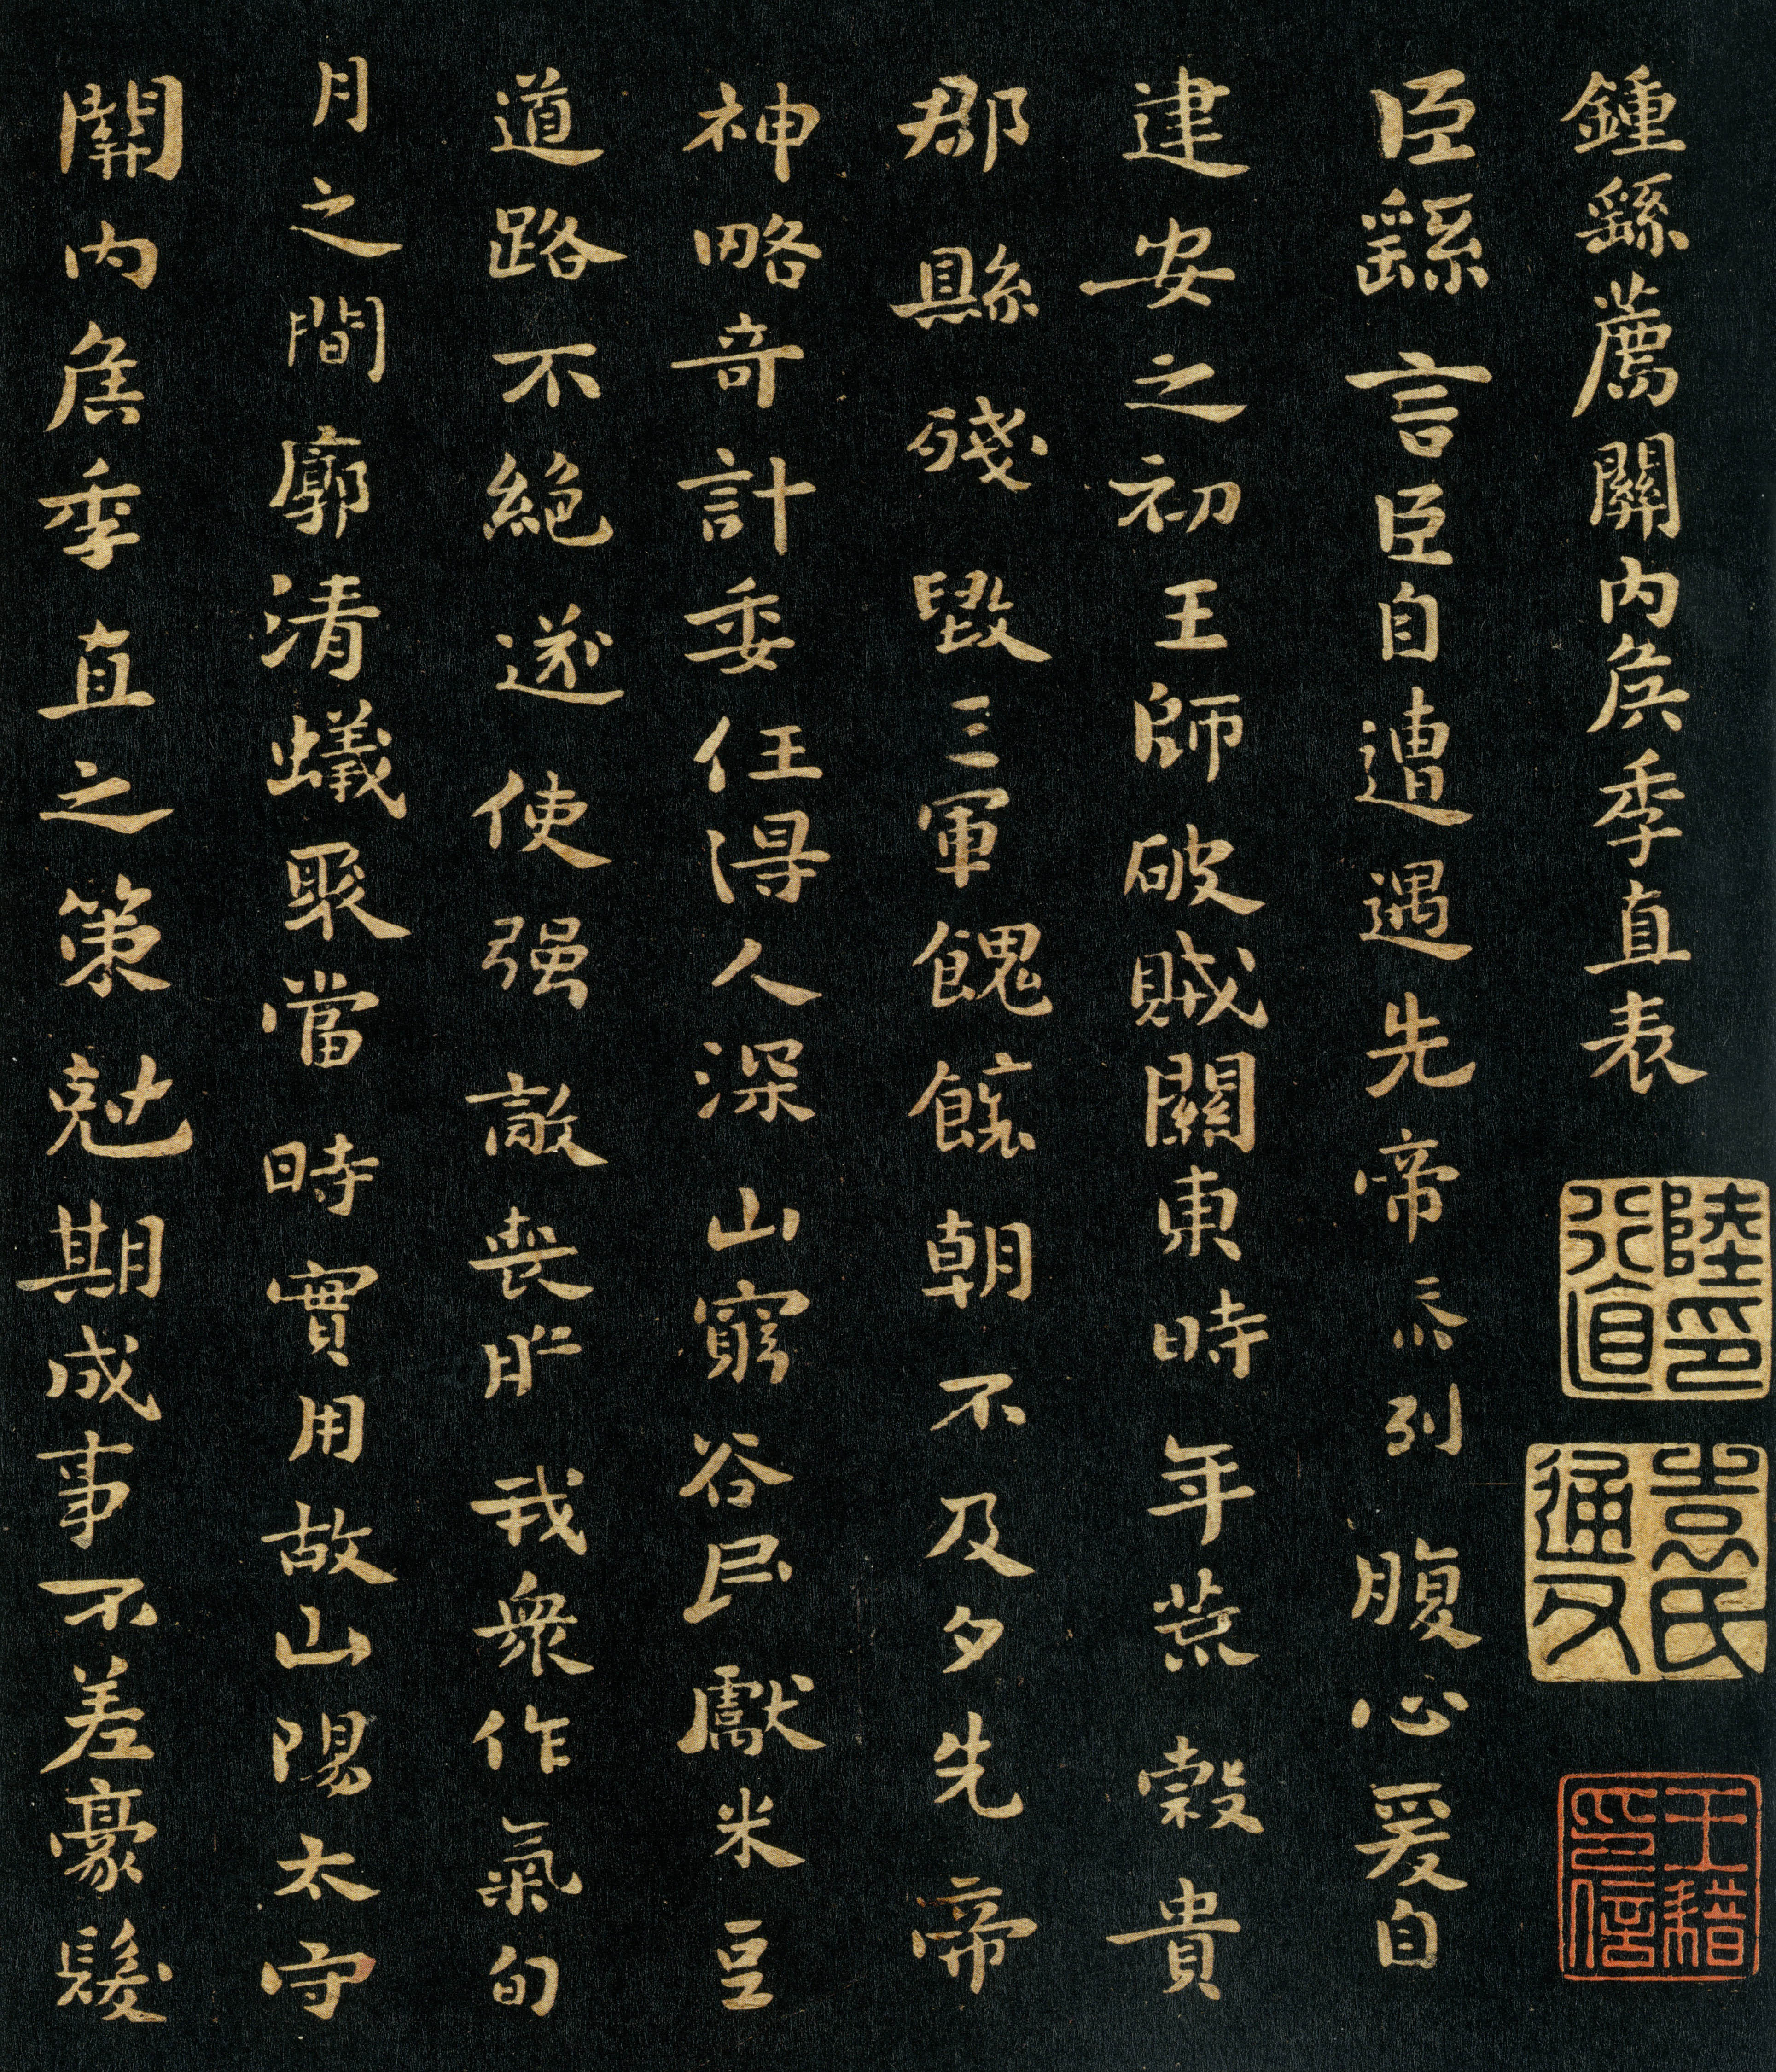 鍾繇薦關內侯季直表
臣繇言臣自遭遇先帝忝列腹心爰自
建安之初王師破賊關東時年荒穀貴
郡縣殘毀三軍餽饟朝不及夕先帝
神略奇計委任得人深山窮谷民獻米豆
道路不絕遂使强敵喪膽我衆作氣旬
月之間廓清蟻聚當時實用故山陽太守
關內侯季直之策尅期成事不差豪髮
陸行直印
袁氏
王印信